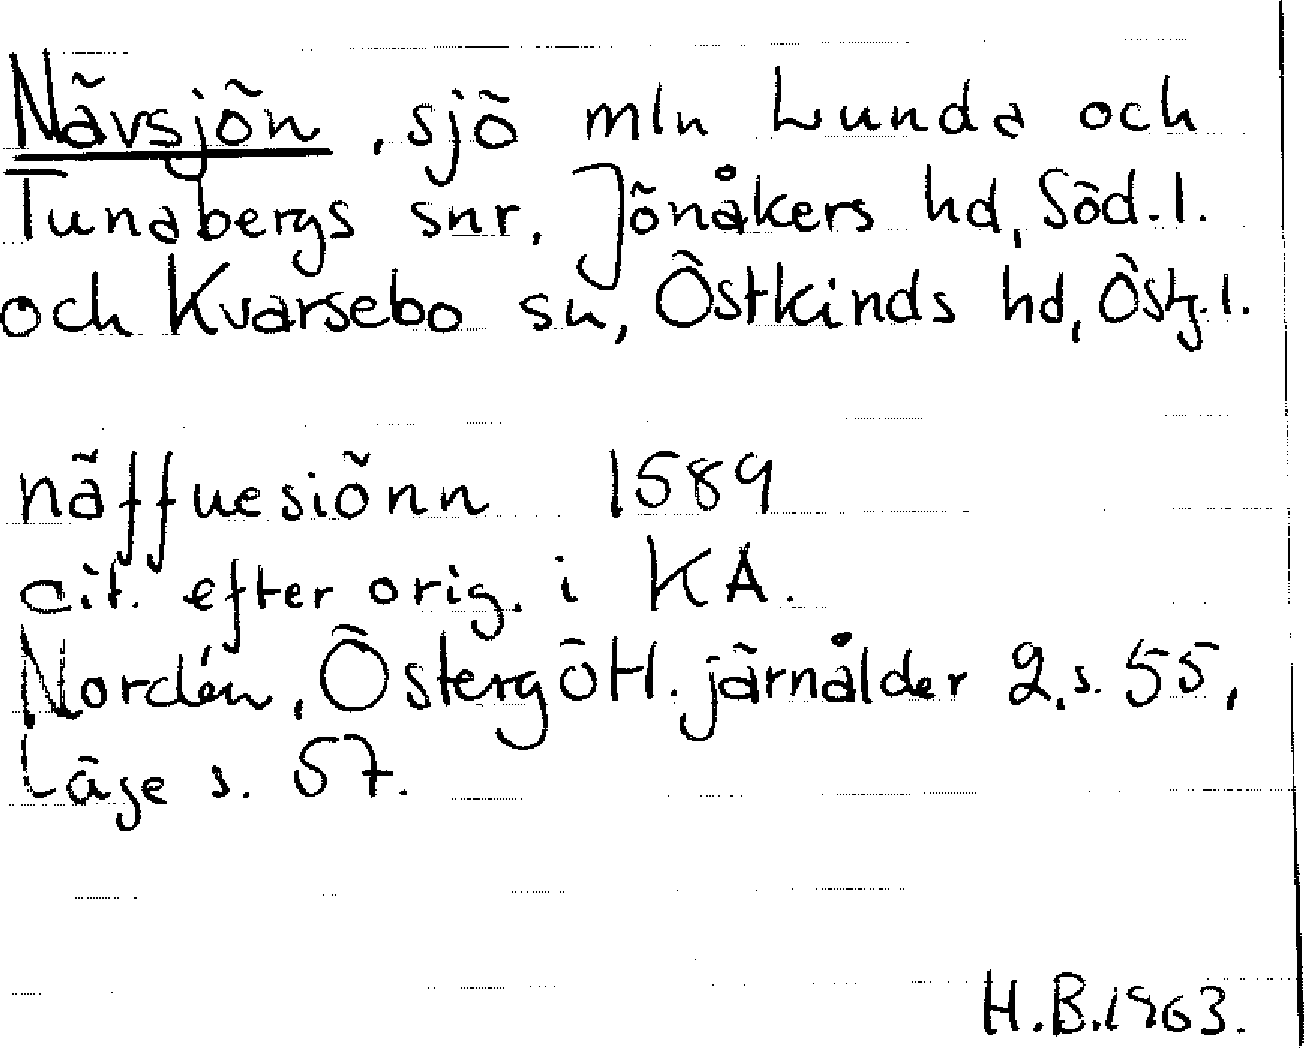 Nävsjön, sjö mln Lunda och
Tunabergs snr, Jönåkers hd, Söd.l.
och Kvarsebo sn, Östkinds hd, Östg.l.
näffuesiönn 1589
cit. efter orig. i KA.
Nordén, Östergötl. järnålder 2, s. 55,
Läge s. 57.
H.B. 1963.